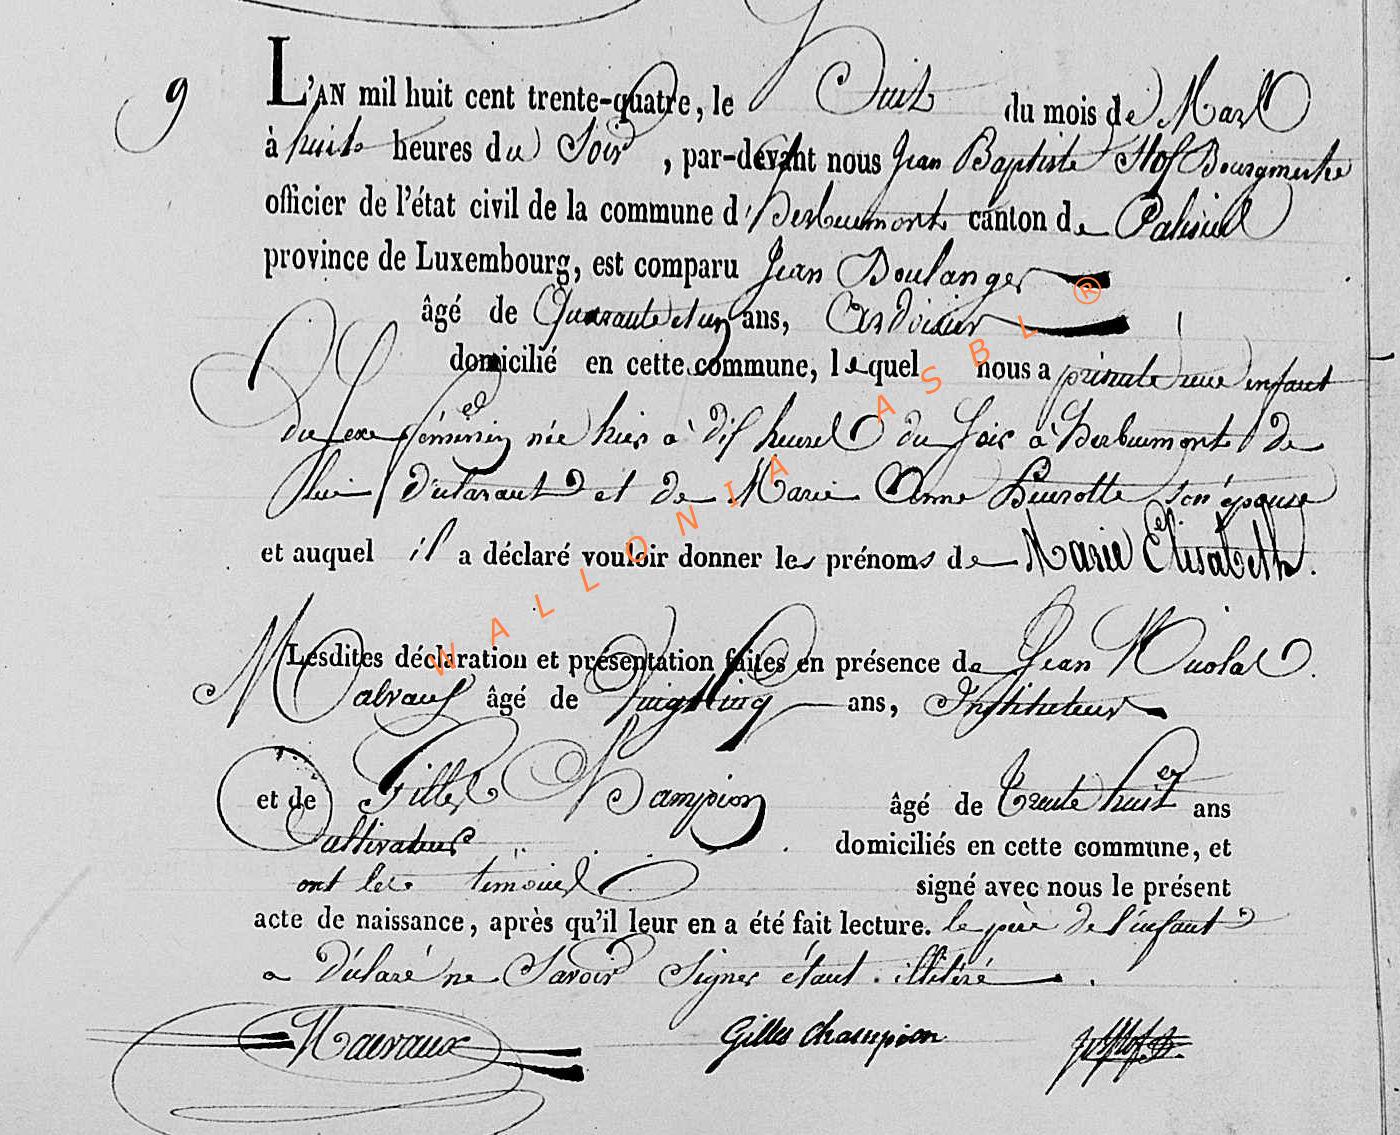 9
L'AN mil huit cent trente-quatre, le huit du mois de Mars
à huit heures du Soir, par-devant nous Jean Baptiste Hof Bourgmestre
officier de l'état civil de la commune d'herbeumont canton de Paliseul
province de Luxembourg, est comparu Jean Boulanger
âgé de Quarante et un ans, Ardoisier
domicilié en cette commune, lequel nous a présenté une enfant
du sexe féminin née hier à dix heures du soir à herbeumont de
lui déclarant et de Marie Anne son épouse
et auquel il a déclaré vouloir donner les prénoms de Marie Elisabeth.
Lesdites déclaration et présentation faites en présence de Jean Nicolas
Malvaux âgé de Vingt cinq ans, Instituteur
et de Gilles Champion âgé de trente huit ans
Cultivateur domiciliés en cette commune, et
ont les témoins signé avec nous le présent
acte de naissance, après qu'il leur en a été fait lecture. le père de l'enfant
a déclaré ne Savoir Signer étant illitéré.
Gilles Champion
WALLONIA ASBL ®